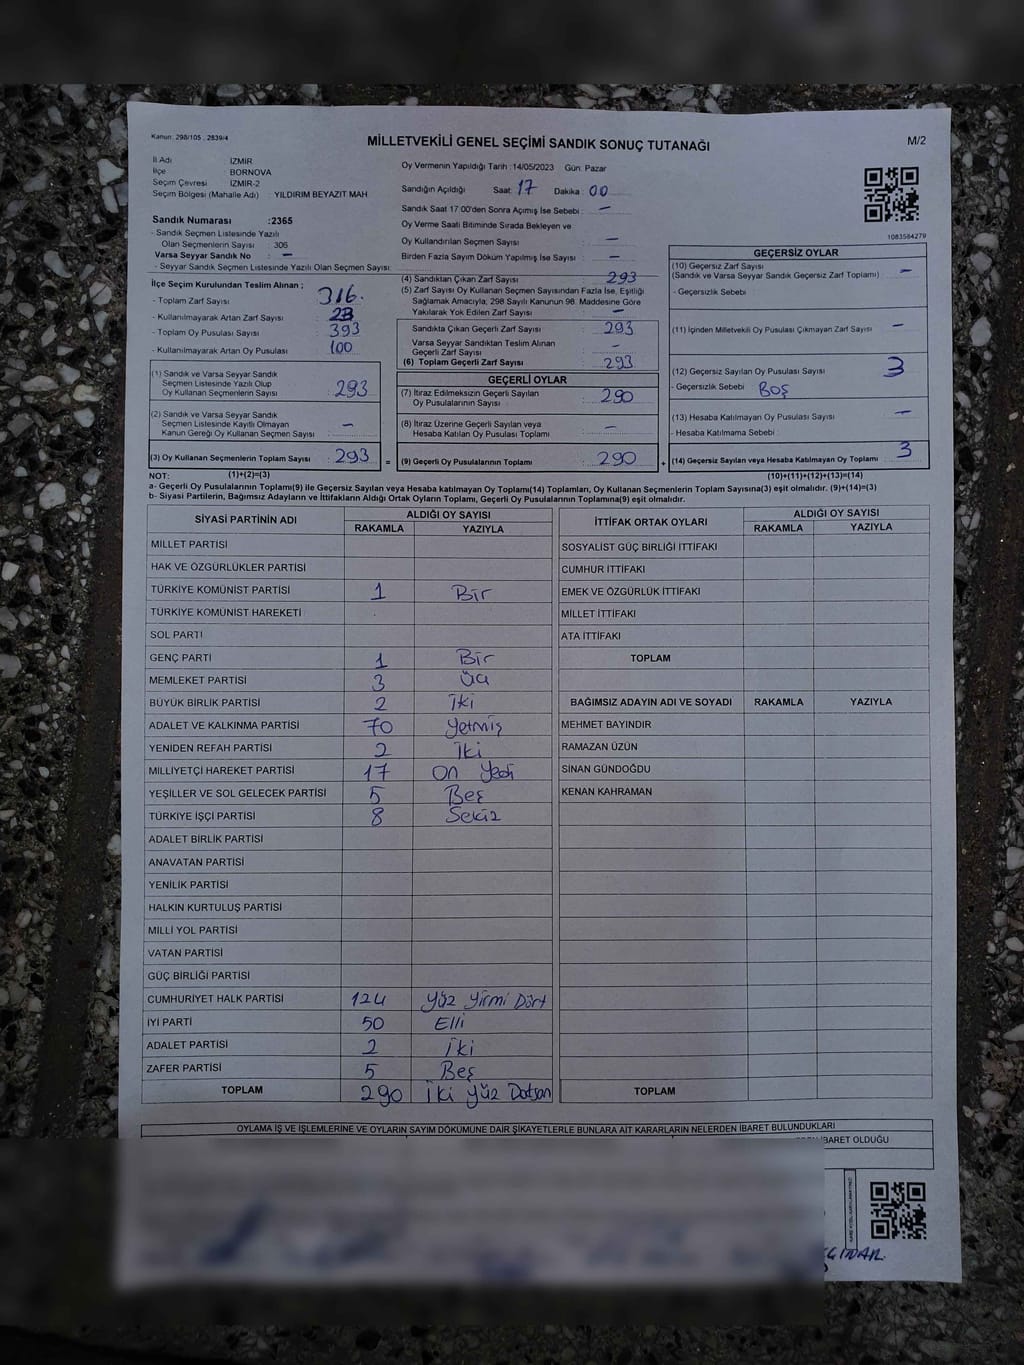 Kanun: 298/105 , 2839/4
MİLLETVEKİLİ GENEL SEÇİMİ SANDIK SONUÇ TUTANAĞI
M/2
İl Adı İZMİR
İlçe BORNOVA
Seçim Çevresi İZMİR-2
Seçim Bölgesi (Mahalle Adı) : YILDIRIM BEYAZIT MAH
Sandık Numarası :2365
- Sandık Seçmen Listesinde Yazılı
Olan Seçmenlerin Sayısı : 306
Varsa Seyyar Sandık No –
- Seyyar Sandık Seçmen Listesinde Yazılı Olan Seçmen Sayısı
İlçe Seçim Kurulundan Teslim Alınan ;
- Toplam Zarf Sayısı 316.
- Kullanılmayarak Artan Zarf Sayısı : 23
- Toplam Oy Pusulası Sayısı 393
- Kullanılmayarak Artan Oy Pusulası 100
(1) Sandık ve Varsa Seyyar Sandık
Seçmen Listesinde Yazılı Olup
Oy Kullanan Seçmenlerin Sayısı : 293
(2) Sandık ve Varsa Seyyar Sandık
Seçmen Listesinde Kayıtlı Olmayan
Kanun Gereği Oy Kullanan Seçmen Sayısı : –
(3) Oy Kullanan Seçmenlerin Toplam Sayısı : 293 =
Oy Vermenin Yapıldığı Tarih :14/05/2023 Gün: Pazar
Sandığın Açıldığı Saat: 17 Dakika : 00
Sandık Saat 17:00'den Sonra Açımış İse Sebebi : –
Oy Verme Saati Bitiminde Sırada Bekleyen ve
Oy Kullandırılan Seçmen Sayısı –
Birden Fazla Sayım Döküm Yapılmış İse Sayısı : –
(4) Sandıktan Çıkan Zarf Sayısı : 293
(5) Zarf Sayısı Oy Kullanan Seçmen Sayısından Fazla İse, Eşitliği
Sağlamak Amacıyla; 298 Sayılı Kanunun 98. Maddesine Göre
Yakılarak Yok Edilen Zarf Sayısı : –
Sandıkta Çıkan Geçerli Zarf Sayısı : 293
Varsa Seyyar Sandıktan Teslim Alınan
Geçerli Zarf Sayısı –
(6) Toplam Geçerli Zarf Sayısı : 293
GEÇERLİ OYLAR
(7) İtiraz Edilmeksizin Geçerli Sayılan
Oy Pusulalarının Sayısı : 290
(8) İtiraz Üzerine Geçerli Sayılan veya
Hesaba Katılan Oy Pusulası Toplamı –
(9) Geçerli Oy Pusulalarının Toplamı : 290 +
1083584279
GEÇERSİZ OYLAR
(10) Geçersiz Zarf Sayısı
(Sandık ve Varsa Seyyar Sandık Geçersiz Zarf Toplamı) –
- Geçersizlik Sebebi
(11) İçinden Milletvekili Oy Pusulası Çıkmayan Zarf Sayısı –
(12) Geçersiz Sayılan Oy Pusulası Sayısı 3
- Geçersizlik Sebebi Boş
(13) Hesaba Katılmayan Oy Pusulası Sayısı –
- Hesaba Katılmama Sebebi
(14) Geçersiz Sayılan veya Hesaba Katılmayan Oy Toplamı 3
NOT: (1)+(2)=(3) (10)+(11)+(12)+(13)=(14)
a- Geçerli Oy Pusulalarının Toplamı(9) ile Geçersiz Sayılan veya Hesaba katılmayan Oy Toplamı(14) Toplamları, Oy Kullanan Seçmenlerin Toplam Sayısına(3) eşit olmalıdır. (9)+(14)=(3)
b- Siyasi Partilerin, Bağımsız Adayların ve İttifakların Aldığı Ortak Oyların Toplamı, Geçerli Oy Pusulalarının Toplamına(9) eşit olmalıdır.
SİYASİ PARTİNİN ADI ALDIĞI OY SAYISI
RAKAMLA YAZIYLA
MİLLET PARTİSİ
HAK VE ÖZGÜRLÜKLER PARTİSİ
TÜRKİYE KOMÜNİST PARTİSİ 1 Bir
TÜRKİYE KOMÜNİST HAREKETİ
SOL PARTİ
GENÇ PARTİ 1 Bir
MEMLEKET PARTİSİ 3 Üç
BÜYÜK BİRLİK PARTİSİ 2 İki
ADALET VE KALKINMA PARTİSİ 70 Yetmiş
YENİDEN REFAH PARTİSİ 2 İki
MİLLİYETÇİ HAREKET PARTİSİ 17 On Yedi
YEŞİLLER VE SOL GELECEK PARTİSİ 5 Beş
TÜRKİYE İŞÇİ PARTİSİ 8 Sekiz
ADALET BİRLİK PARTİSİ
ANAVATAN PARTİSİ
YENİLİK PARTİSİ
HALKIN KURTULUŞ PARTİSİ
MİLLİ YOL PARTİSİ
VATAN PARTİSİ
GÜÇ BİRLİĞİ PARTİSİ
CUMHURİYET HALK PARTİSİ 124 Yüz Yirmi Dört
İYİ PARTİ 50 Elli
ADALET PARTİSİ 2 İki
ZAFER PARTİSİ 5 Beş
TOPLAM 290 İki Yüz Doksan
İTTİFAK ORTAK OYLARI ALDIĞI OY SAYISI
RAKAMLA YAZIYLA
SOSYALİST GÜÇ BİRLİĞİ İTTİFAKI
CUMHUR İTTİFAKI
EMEK VE ÖZGÜRLÜK İTTİFAKI
MİLLET İTTİFAKI
ATA İTTİFAKI
TOPLAM
BAĞIMSIZ ADAYIN ADI VE SOYADI RAKAMLA YAZIYLA
MEHMET BAYINDIR
RAMAZAN ÜZÜN
SİNAN GÜNDOĞDU
KENAN KAHRAMAN
TOPLAM
OYLAMA İŞ VE İŞLEMLERİNE VE OYLARIN SAYIM DÖKÜMÜNE DAİR ŞİKAYETLERLE BUNLARA AİT KARARLARIN NELERDEN İBARET BULUNDUKLARI
İBARET OLDUĞU